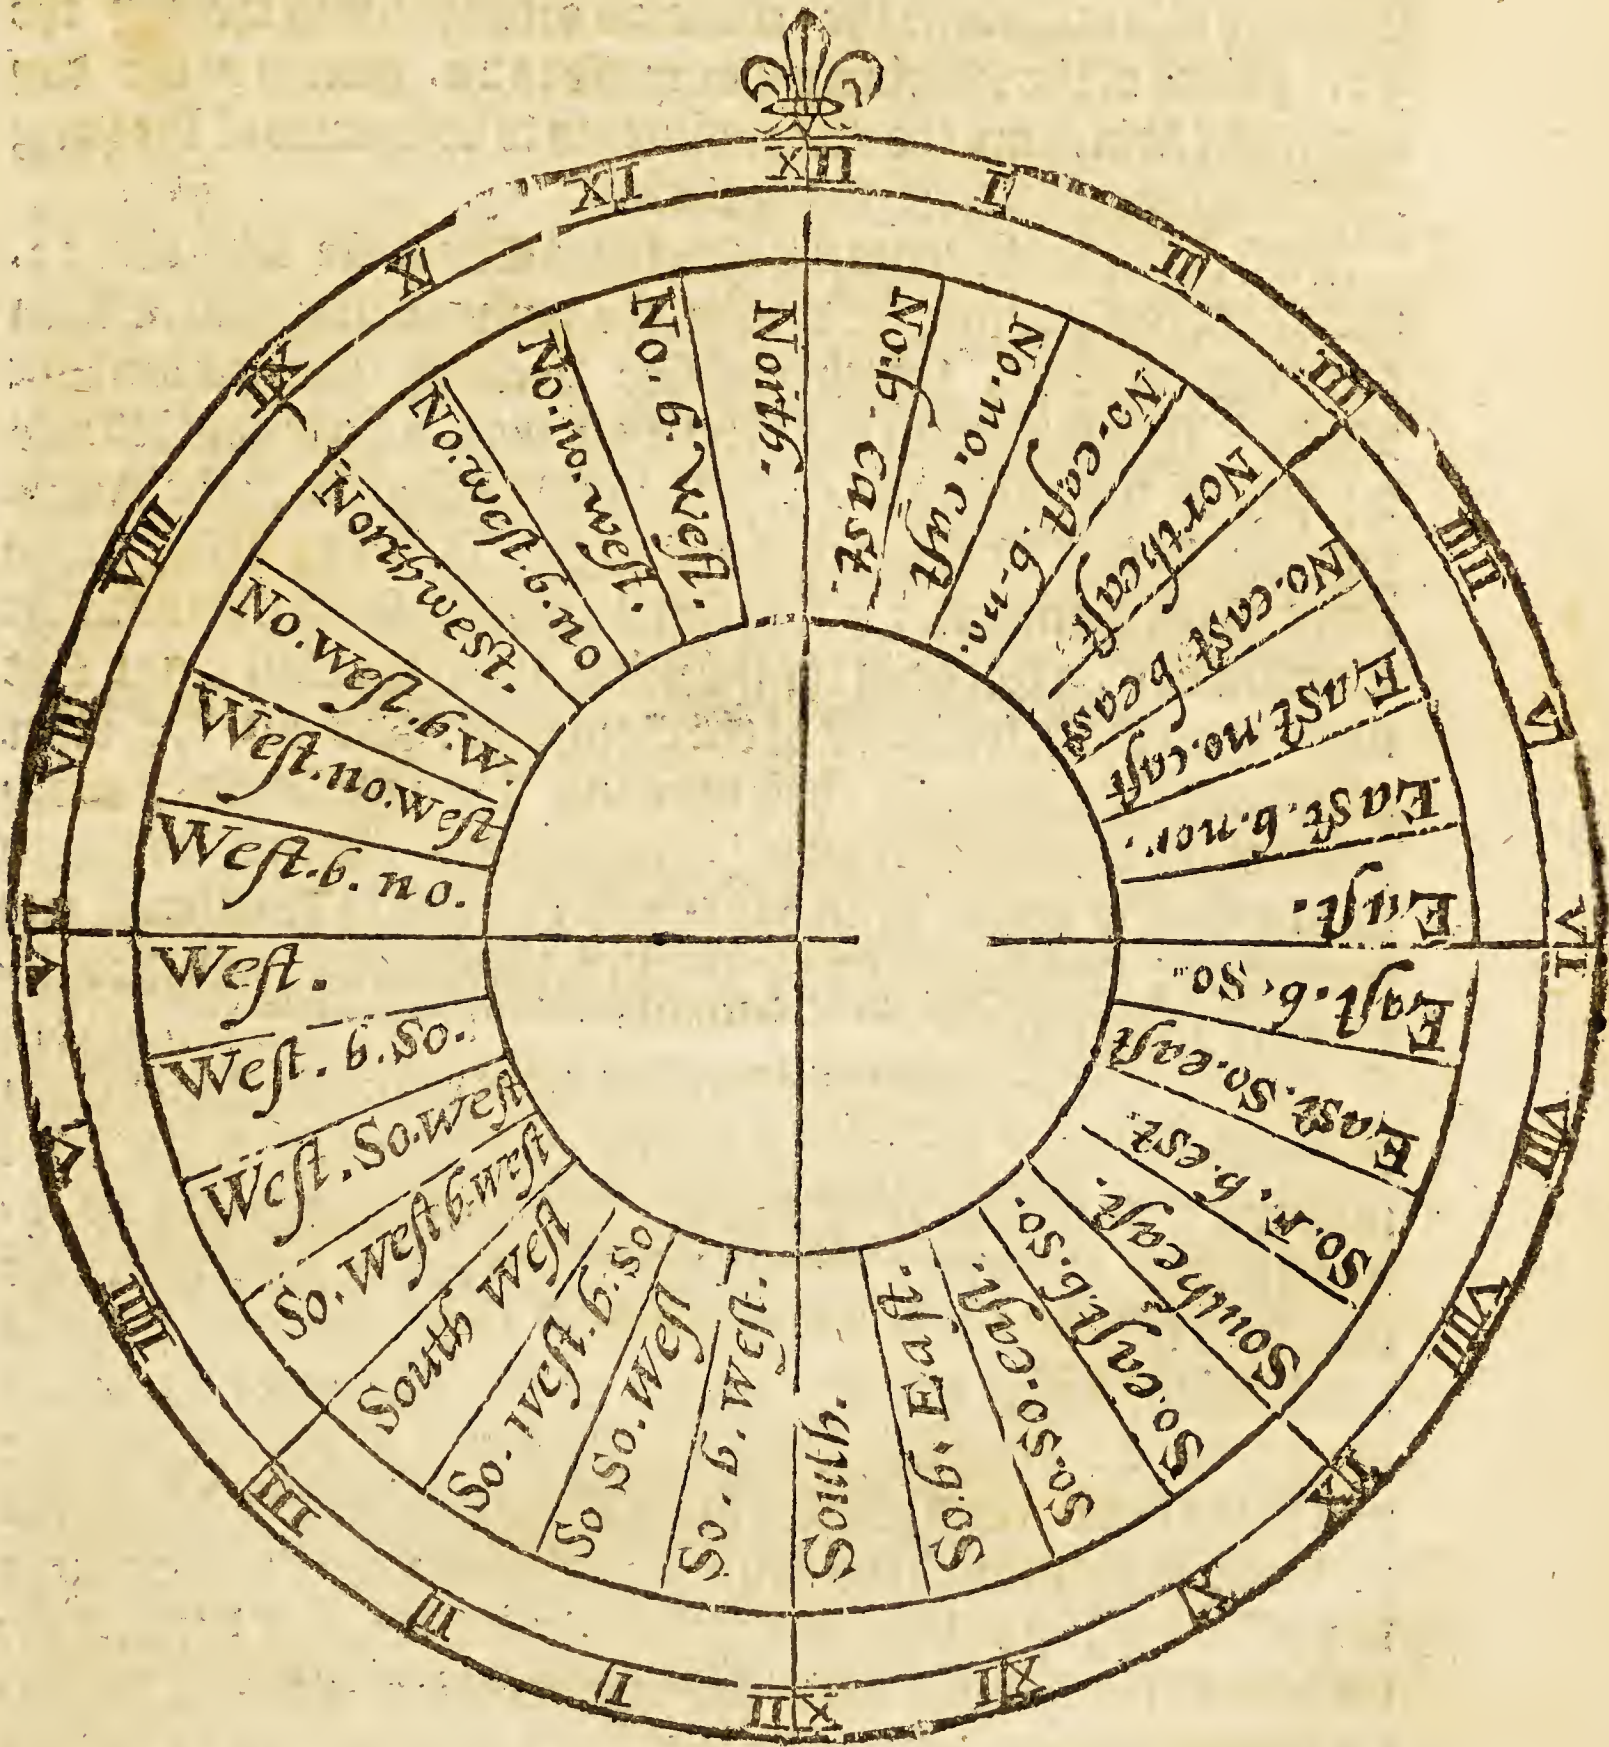 XII
I
II
III
IIII
V
VI
VII
VIII
IX
X
XI
XII
I
II
III
IIII
V
VI
VII
VIII
IX
X
XI
North.
No.b. east.
No.no.east
No.east.b.no.
Northeast.
No.east b east
East.no.east
East.b.nor.
East.
East.b.So.
East.So.east
So.E.b.est.
Southeast.
So.east.b.so.
So.so.east.
So.b.East.
South.
So.b.West.
So So.West
So.west.b.so
South West
So.West b.west
West.So.west
West.b.So.
West.
West.b.no.
West.no.west
No.west.b.w.
Northwest.
No.west.b.no
No.no.west.
No.b.West.